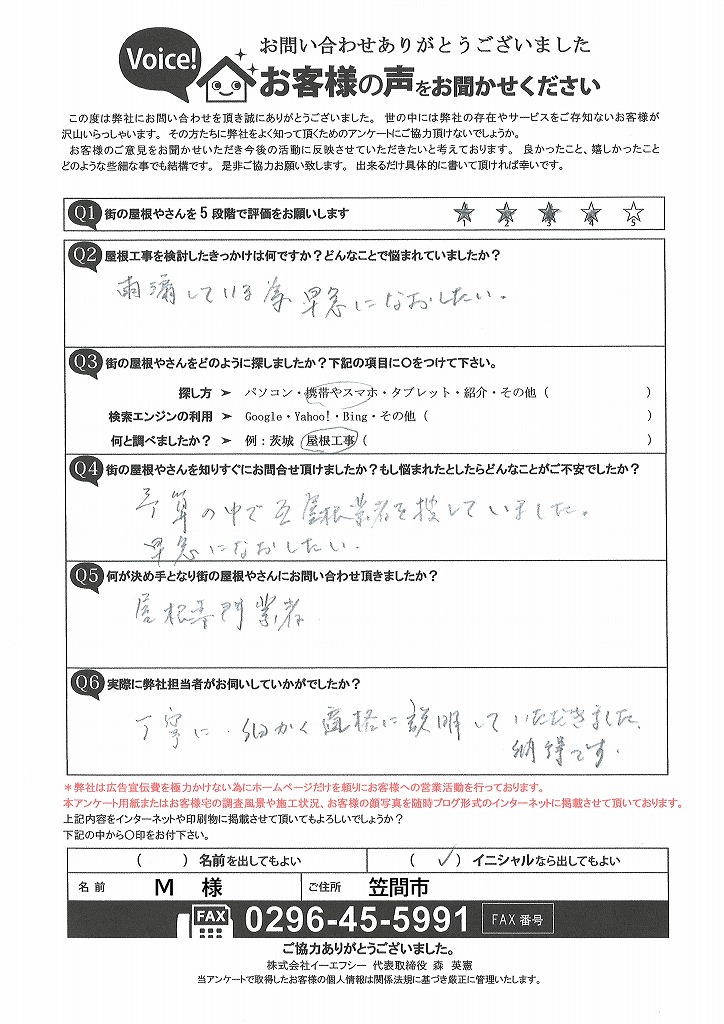 Voice!
お問い合わせありがとうございました
お客様の声をお聞かせください
この度は弊社にお問い合わせを頂き誠にありがとうございました。 世の中には弊社の存在やサービスをご存知ないお客様が
沢山いらっしゃいます。 その方たちに弊社をよく知って頂くためのアンケートにご協力頂けないでしょうか。
お客様のご意見をお聞かせいただき今後の活動に反映させていただきたいと考えております。 良かったこと、嬉しかったこと
どのような些細な事でも結構です。 是非ご協力お願い致します。 出来るだけ具体的に書いて頂ければ幸いです。
Q1 街の屋根やさんを5段階で評価をお願いします
1 2 3 4 5
Q2 屋根工事を検討したきっかけは何ですか？どんなことで悩まれていましたか？
雨漏している為 早急になおしたい。
Q3 街の屋根やさんをどのように探しましたか？下記の項目に〇をつけて下さい。
探し方 ➤ パソコン・携帯やスマホ・タブレット・紹介・その他（ ）
検索エンジンの利用 ➤ Google・Yahoo!・Bing・その他（ ）
何と調べましたか？ ➤ 例：茨城 屋根工事（ ）
Q4 街の屋根やさんを知りすぐにお問合せ頂けましたか？もし悩まれたとしたらどんなことがご不安でしたか？
予算の中で 屋根業者を捜していました。
早急になおしたい.
Q5 何が決め手となり街の屋根やさんにお問い合わせ頂きましたか？
屋根専門業者
Q6 実際に弊社担当者がお伺いしていかがでしたか？
丁寧に.細かく 価格に説明していただきました、
納得です.
＊弊社は広告宣伝費を極力かけない為にホームページだけを頼りにお客様への営業活動を行っております。
本アンケート用紙またはお客様宅の調査風景や施工状況、お客様の顔写真を随時ブログ形式のインターネットに掲載させて頂いております。
上記内容をインターネットや印刷物に掲載させて頂いてもよろしいでしょうか？
下記の中から〇印をお付下さい。
（ ）名前を出してもよい （ ✓ ）イニシャルなら出してもよい
名前 M 様 ご住所 笠間市
FAX 0296-45-5991 FAX 番号
ご協力ありがとうございました。
株式会社イーエフシー 代表取締役 森 英憲
当アンケートで取得したお客様の個人情報は関係法規に基づき厳正に管理いたします。